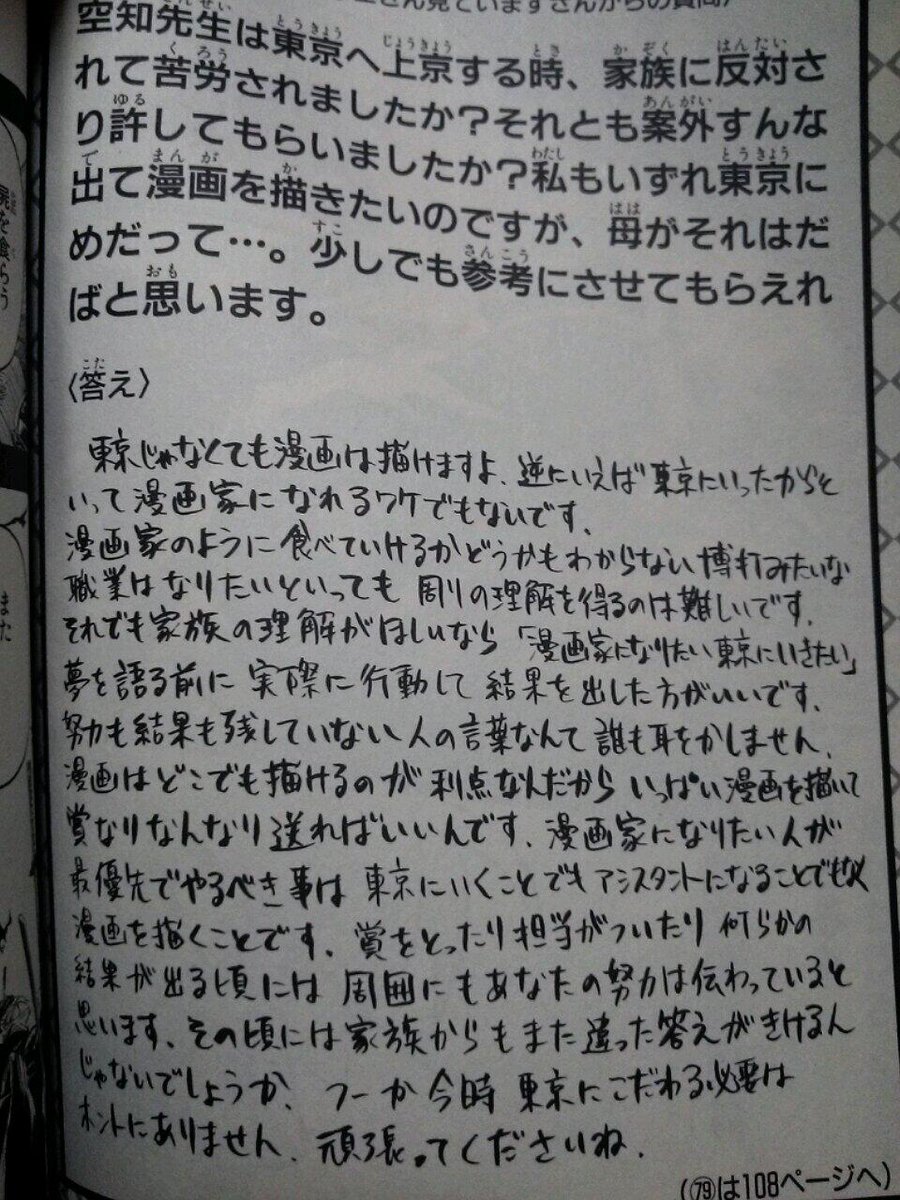 さん見ていますさんからの質問〉
空知先生は東京へ上京する時、家族に反対さ
れて苦労されましたか?それとも案外すんな
り許してもらいましたか?私もいずれ東京に
出て漫画を描きたいのですが、母がそれはだ
めだって…。少しでも参考にさせてもらえれ
ばと思います。
〈答え〉
東京じゃなくても漫画は描けますよ、逆にいえば東京にいったからと
いって漫画家になれるワケでもないです、
漫画家のように食べていけるかどうかもわからない博打みたいな
職業はなりたいといっても周りの理解を得るのは難しいです、
それでも家族の理解がほしいなら「漫画家になりたい東京にいきたい」
夢を語る前に実際に行動して結果を出した方がいいです、
努力も結果も残していない人の言葉なんて誰も耳をかしません、
漫画はどこでも描けるのが利点なんだからいっぱい漫画を描いて
賞なりなんなり送ればいいんです、漫画家になりたい人が
最優先でやるべき事は東京にいくことでもアシスタントになることでもなく
漫画を描くことです、賞をとったり担当がついたり何らかの
結果が出る頃には周囲にもあなたの努力は伝わっていると
思います、その頃には家族からもまた違った答えがきけるん
じゃないでしょうか、つーか今時東京にこだわる必要は
ホントにありません、頑張ってくださいね、
(79は108ページへ)
屍を喰らう
また